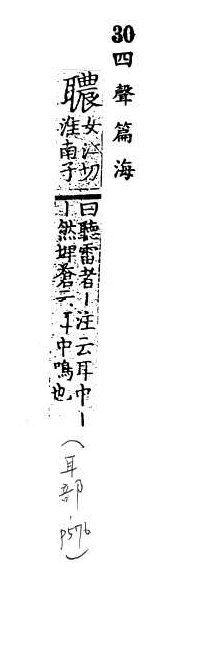 30四聲篇海
聹女江切淮南子
曰聽雷者丨注云耳中丨
丨然埤蒼云耳中鳴也
(耳部, p576)